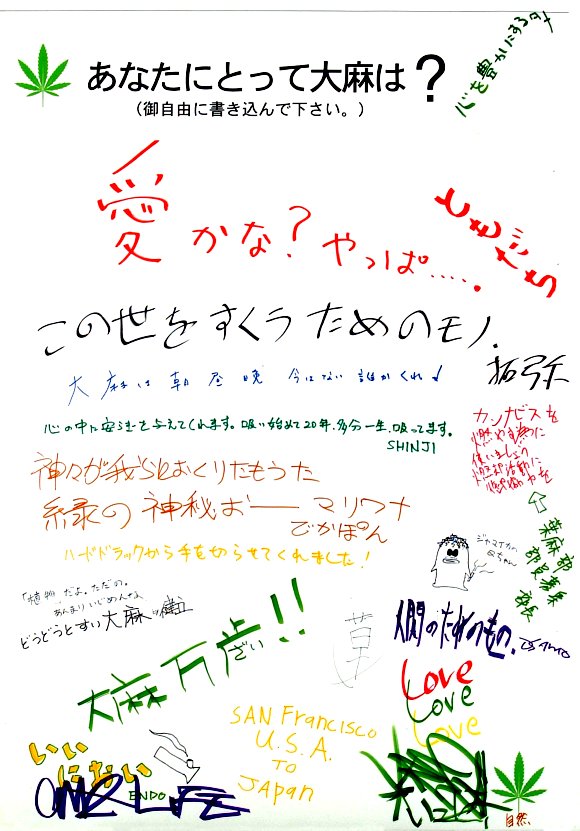 あなたにとって大麻は?
(御自由に書き込んで下さい。)
心を豊かにする
愛かな?やっぱ.....
ともだち
この世をすくうためのモノ.
拓弥
大麻は朝昼晩 今はない 誰かくれ!
心の中に安らぎを与えてくれます。吸い始めて20年.多分一生.吸ってます。
SHINJI
カンナビスを
燃やす為に
使いましょう
神々が我らにおくりたもうた
緑の神秘お――マリワナ
でかぽん
ハードドラックから手を切らせてくれました!
ジャマイカの
葉麻部
部員募集
部長
「植物」だよ。ただの。
あんまりいじめんな
どうどうとすい大麻
草
人間のためのもの.
大麻万歩!!
ざい
Love
Love
Love
SAN Francisco
U.S.A.
TO
JAPAN
いい
ENDO
自然.